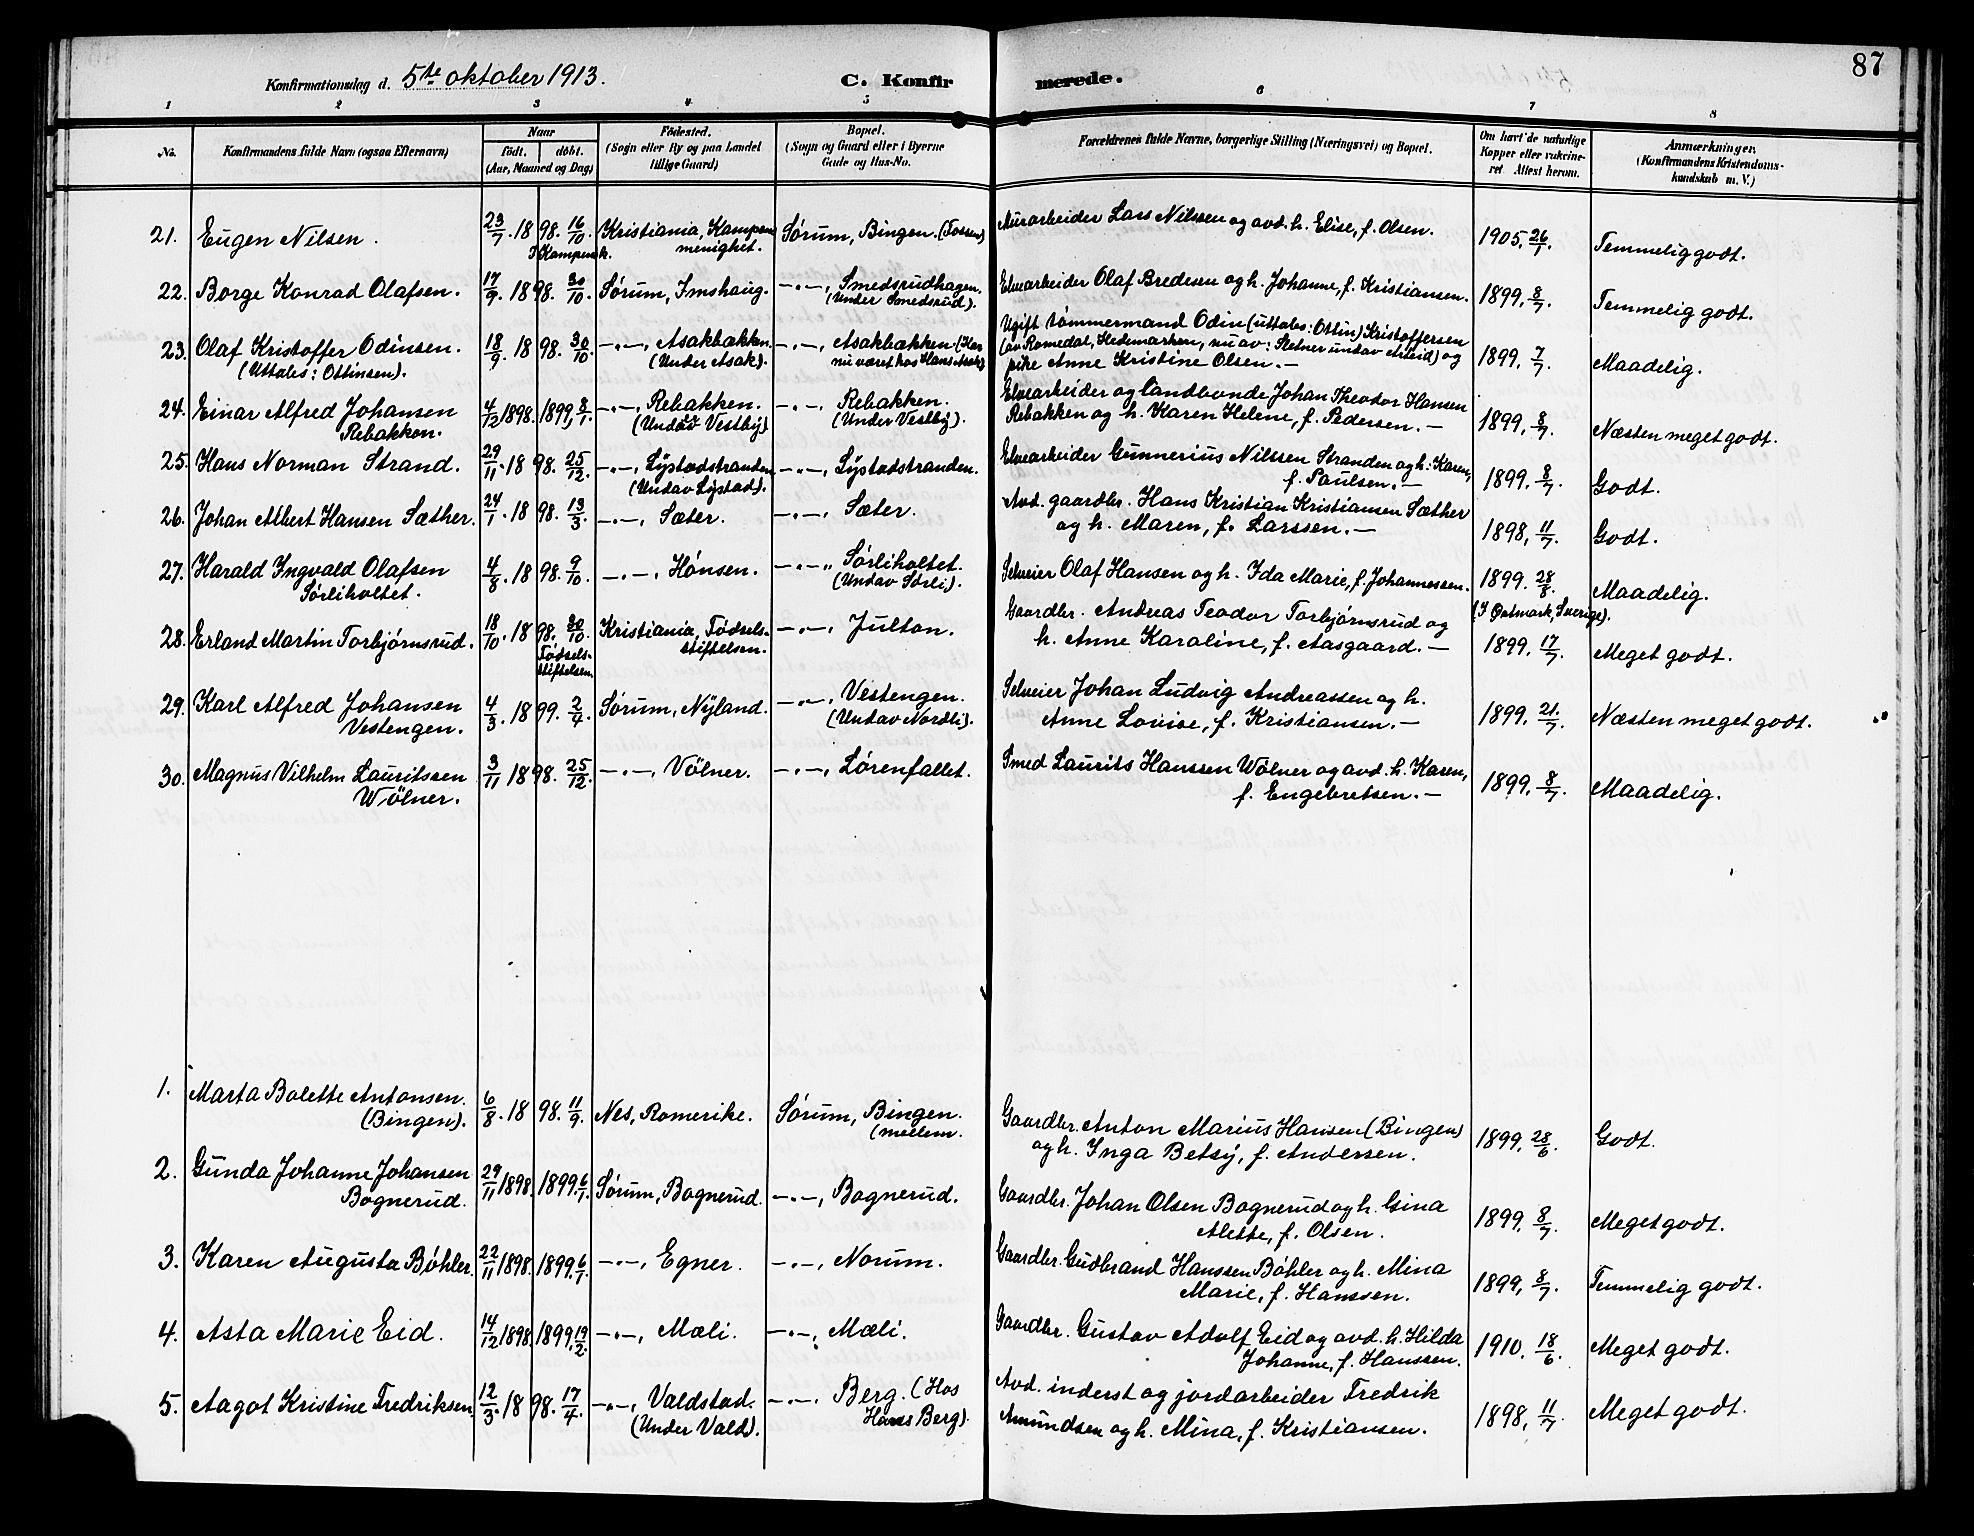 87
Konfirmationsdag d. 5te oktober 1913.
C. Konfirmerede.
1 2 3 4 5 6 7 8
No.
Konfirmandens fulde Navn (ogsaa Efternavn)
Naar
født. døbt.
(Aar, Maaned og Dag)
Fødested.
(Sogn eller By og paa Landet
tillige Gaard)
Bopæl.
(Sogn og Gaard eller i Byerne
Gade og Hus-No.
Forældrenes fulde Navne, borgerlige Stilling (Næringsvei) og Bopæl.
Om havt de naturlige
Kopper eller vakcine-
ret Attest herom.
Anmærkninger.
(Konfirmandens Kristendoms-
kundskab m. V.)
21. Eugen Nilsen. 23/7. 1898. 16/10. Kristiania, Kampens Sørum, Bingen. (Fossen) Murarbeider Lars Nilssen og avd. h. Elise, f. Olsen. 1905, 26/1. Temmelig godt.
I Kampens k. menighet.
22. Borge Konrad Olafsen. 17/9. 1898. 30/10. Sørum, Imshaug. —„—, Smedsrudhagen. Elvearbeider Olaf Bredesen og h. Johanne, f. Kristiansen. 1899, 8/7. Temmelig godt.
(Under Smedsrud).
23. Olaf Kristoffer Odinsen. 18/9. 1898. 30/10. —„—, Asakbakken. —„—, Asakbakken. (Har Ugift tømmermand Odin (uttales: Ottin) Kristoffersen 1899, 7/7. Maadelig.
(Uttales: Ottinsen). (Under Asak). nu været hos Hans Asak) (av Romedal, Hedemarken, nu av: Sletner undav Arteid) og
pike Anne Kristine Olsen. —
24. Einar Alfred Johansen 4/12 1898. 1899, 8/1. —„—, Rebakken. —„—, Rebakken. Elvearbeider og landbonde Johan Theodor Hansen 1899, 8/7. Næsten meget godt.
Rebakken. (Undav Vestby) (Under Vestby). Rebakken og h. Karen Helene, f. Pedersen. —
25. Hans Norman Strand. 29/11. 1898. 25/12. —„—, Lystadstranden —„—, Lystadstranden. Elvearbeider Gunnerius Nilssen Stranden og h. Karen, 1899, 8/7. Godt.
(Undav Lystad). f. Paulsen. —
26. Johan Albert Hansen Sæther. 24/1. 1898. 13/3. —„—, Sæter. —„—, Sæter. Avd. gaardbr. Hans Kristian Kristiansen Sæther 1898, 11/7. Godt.
og h. Maren, f. Larssen. —
27. Harald Ingvald Olafsen 4/8. 1898. 9/10. —„—, Hønsen. —„—, Sørliholtet. Selveier Olaf Hansen og h. Ida Marie, f. Johannessen. 1899. 28/8. Maadelig.
Sørliholtet. (Undav Sørli). (I Østmark, Sverige).
28. Erland Martin Torbjørnsrud. 18/10. 1898. 30/10. Kristiania, Fødsels- —„—, Julton. Gaardbr. Andreas Teodor Torbjørnsrud og 1899. 17/7. Meget godt.
Fødsels-
stiftelsen. stiftelsen. h. Anne Karoline, f. Aasgaard. —
29. Karl Alfred Johansen 4/3. 1899. 2/4. Sørum, Nyland. —„—, Vestengen. Selveier Johan Ludvig Andreassen og h. 1899. 21/7. Næsten meget godt.
Vestengen. (Undav Nordli). Anne Lovise, f. Kristiansen. —
30. Magnus Vilhelm Lauritssen 3/11 1898. 25/12. —„—, Vølner. —„—, Lørenfallet. Smed Laurits Hanssen Wølner og avd. h. Karen, 1899, 8/7. Maadelig.
Wølner. f. Engebretsen. —
1. Marta Bolette Antonsen. 6/8. 1898. 11/9. Nes, Romerike. Sørum, Bingen. Gaardbr. Anton Marius Hansen (Bingen) 1899. 28/6. Godt.
(Bingen). (mellem. og h. Inga Betsy, f. Andersen.
2. Gunda Johanne Johansen 29/11 1898. 1899. 6/1. Sørum, Bognerud. —„—, Bognerud. Gaardbr. Johan Olsen Bognerud og h. Gina 1899. 8/7. Meget godt.
Bognerud. Alette, f. Olsen.
3. Karen Augusta Bøhler. 22/11 1898. 1899. 6/1. —„—, Egner. —„—, Norum. Gaardbr. Gudbrand Hanssen Bøhler og h. Mina 1899, 8/7. Temmelig godt.
Marie, f. Hanssen.
4. Asta Marie Eid. 14/12 1898. 1899, 19/2. —„—, Mæli. —„—, Mæli. Gaardbr. Gustav Adolf Eid og avd. h. Hilda 1910. 18/6. Meget godt.
Johanne, f. Hanssen.
5. Aagot Kristine Fredriksen. 12/3. 1898. 17/4. —„—, Valdstad. —„—, Berg. (Hos Avd. inderst og jordarbeider Fredrik 1898, 11/7. Meget godt.
(Under Vald). Hans Berg). Amundsen og h. Mina, f. Kristiansen.